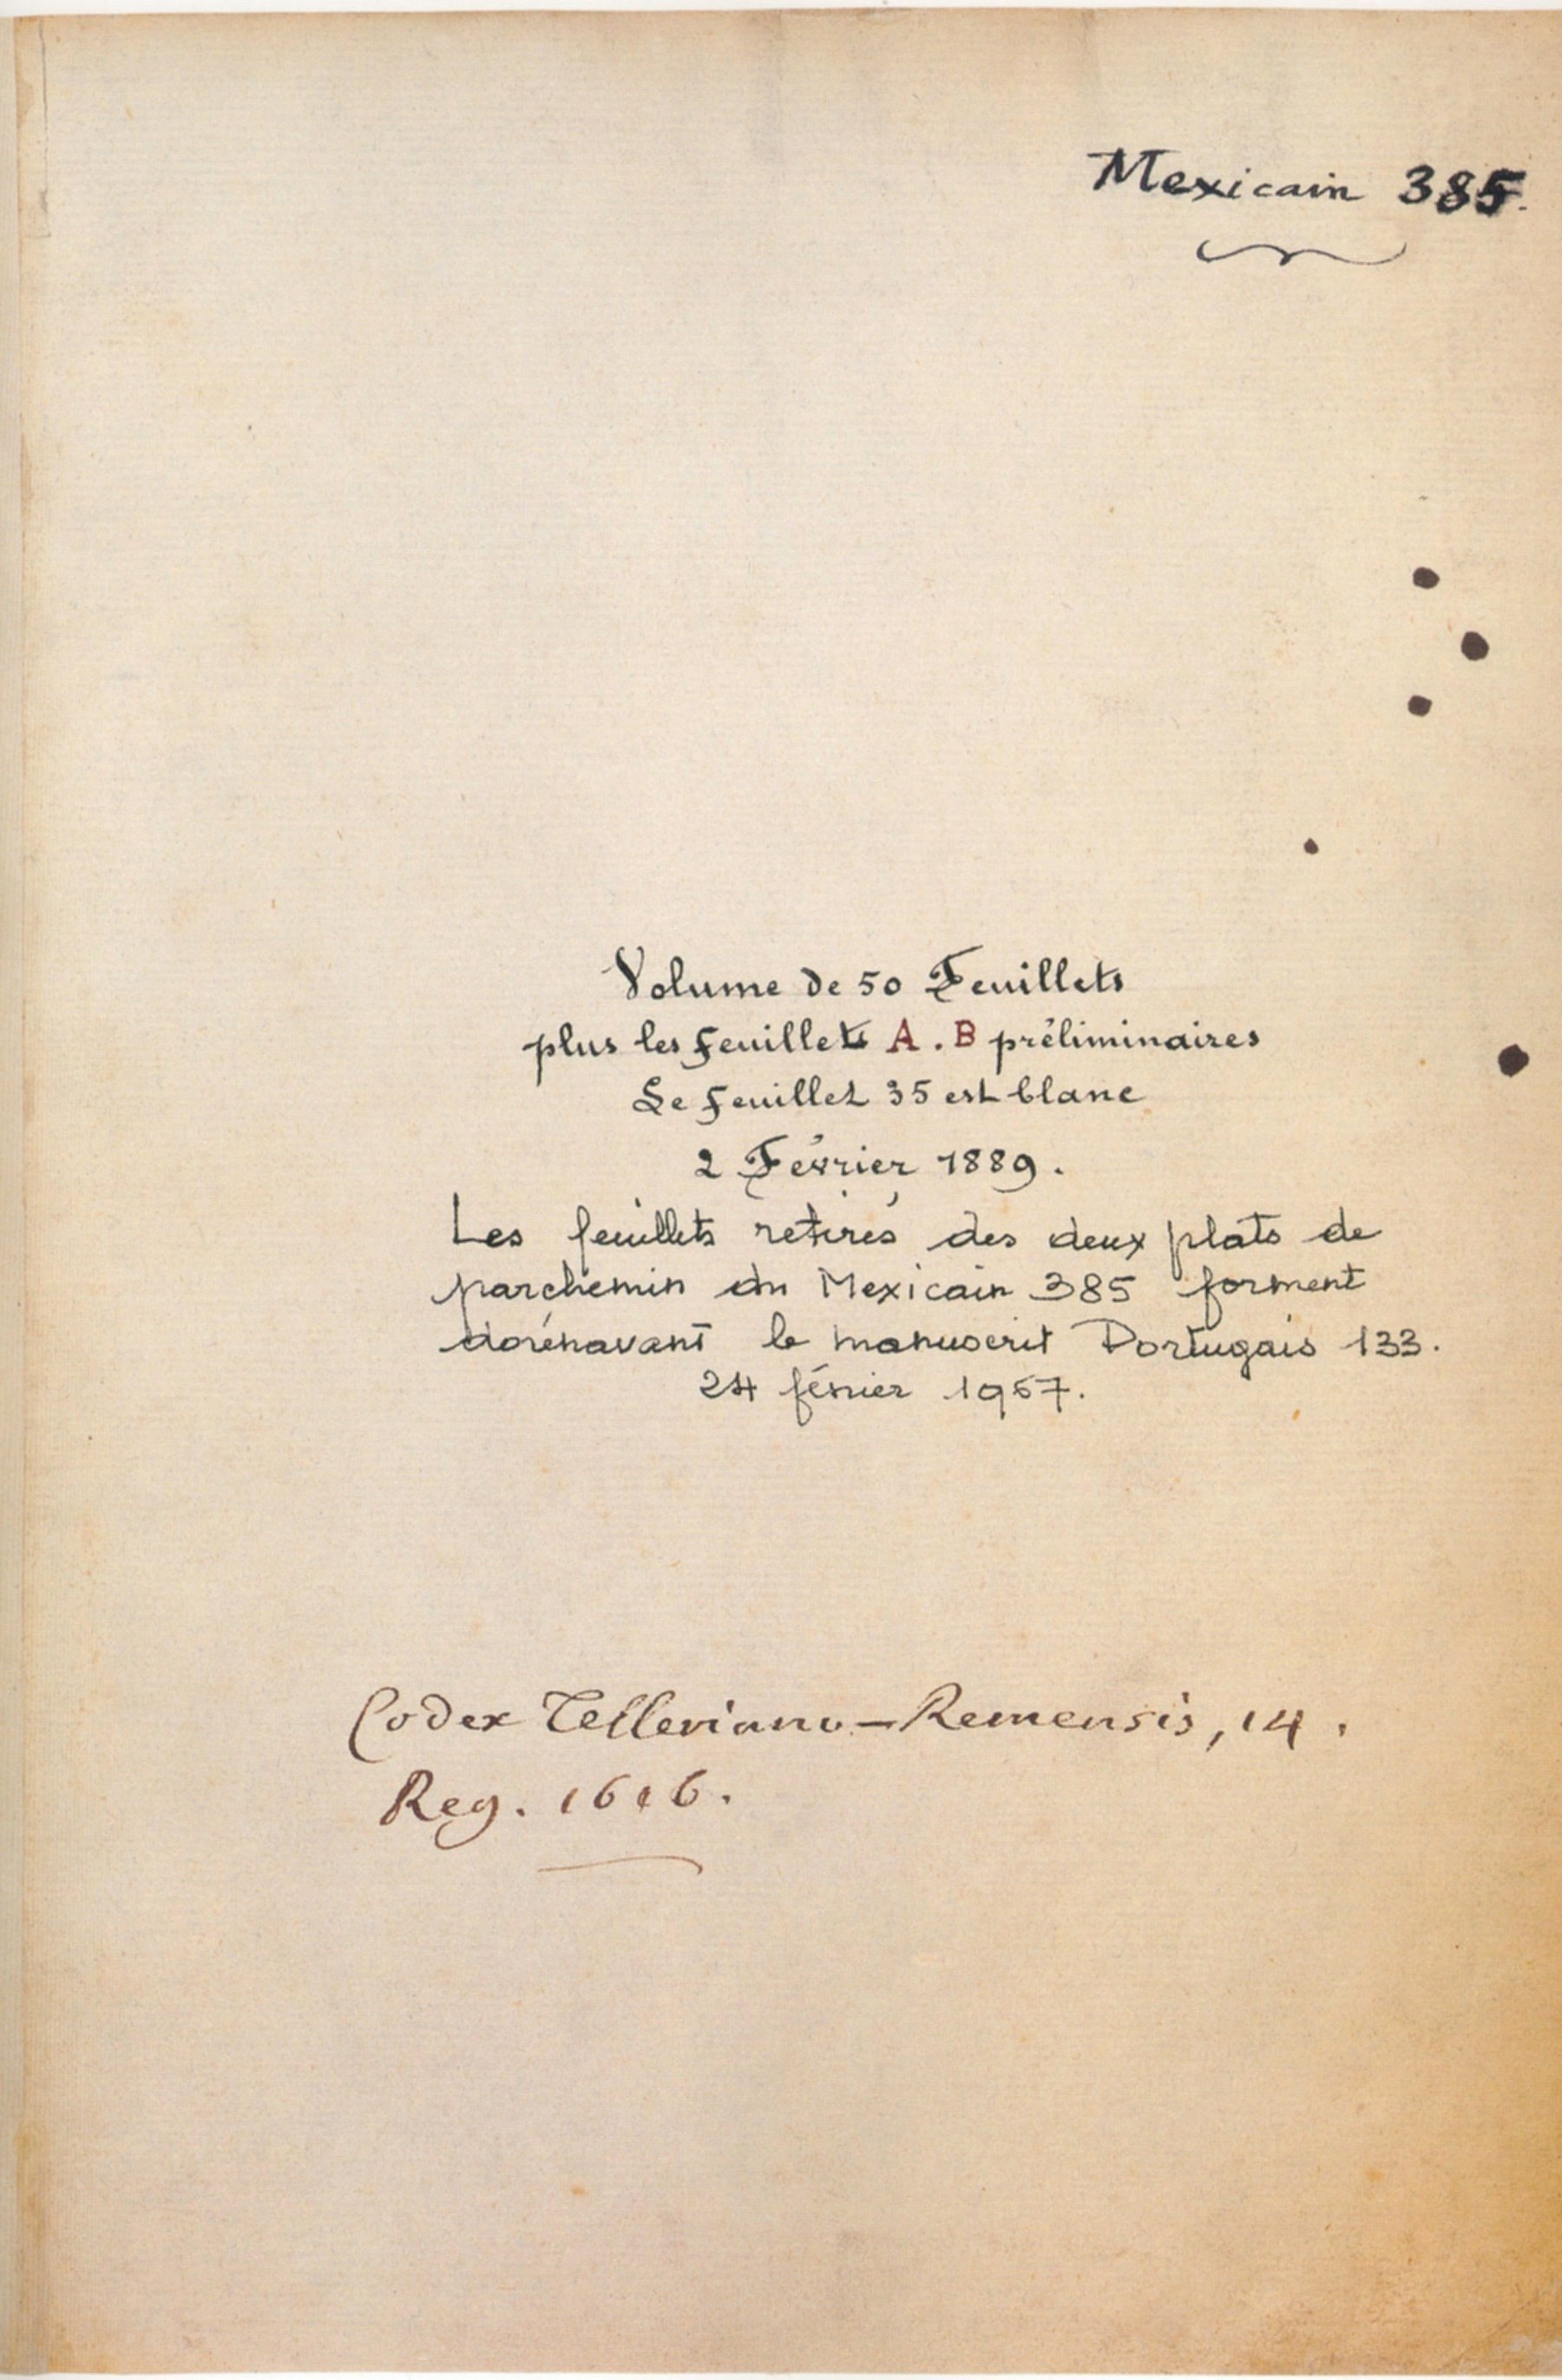 Mexicain 385.
Volume de 50 Feuillets
plus les feuillets A. B préliminaires
Le feuillet 35 est blanc
2 Février 1889.
Les feuillets retirés des deux plats de
parchemin du Mexicain 385 forment
dorénavant le manuscrit Portugais 133.
24 février 1967.
Codex Telleriano-Remensis, 14.
Reg. 1616.